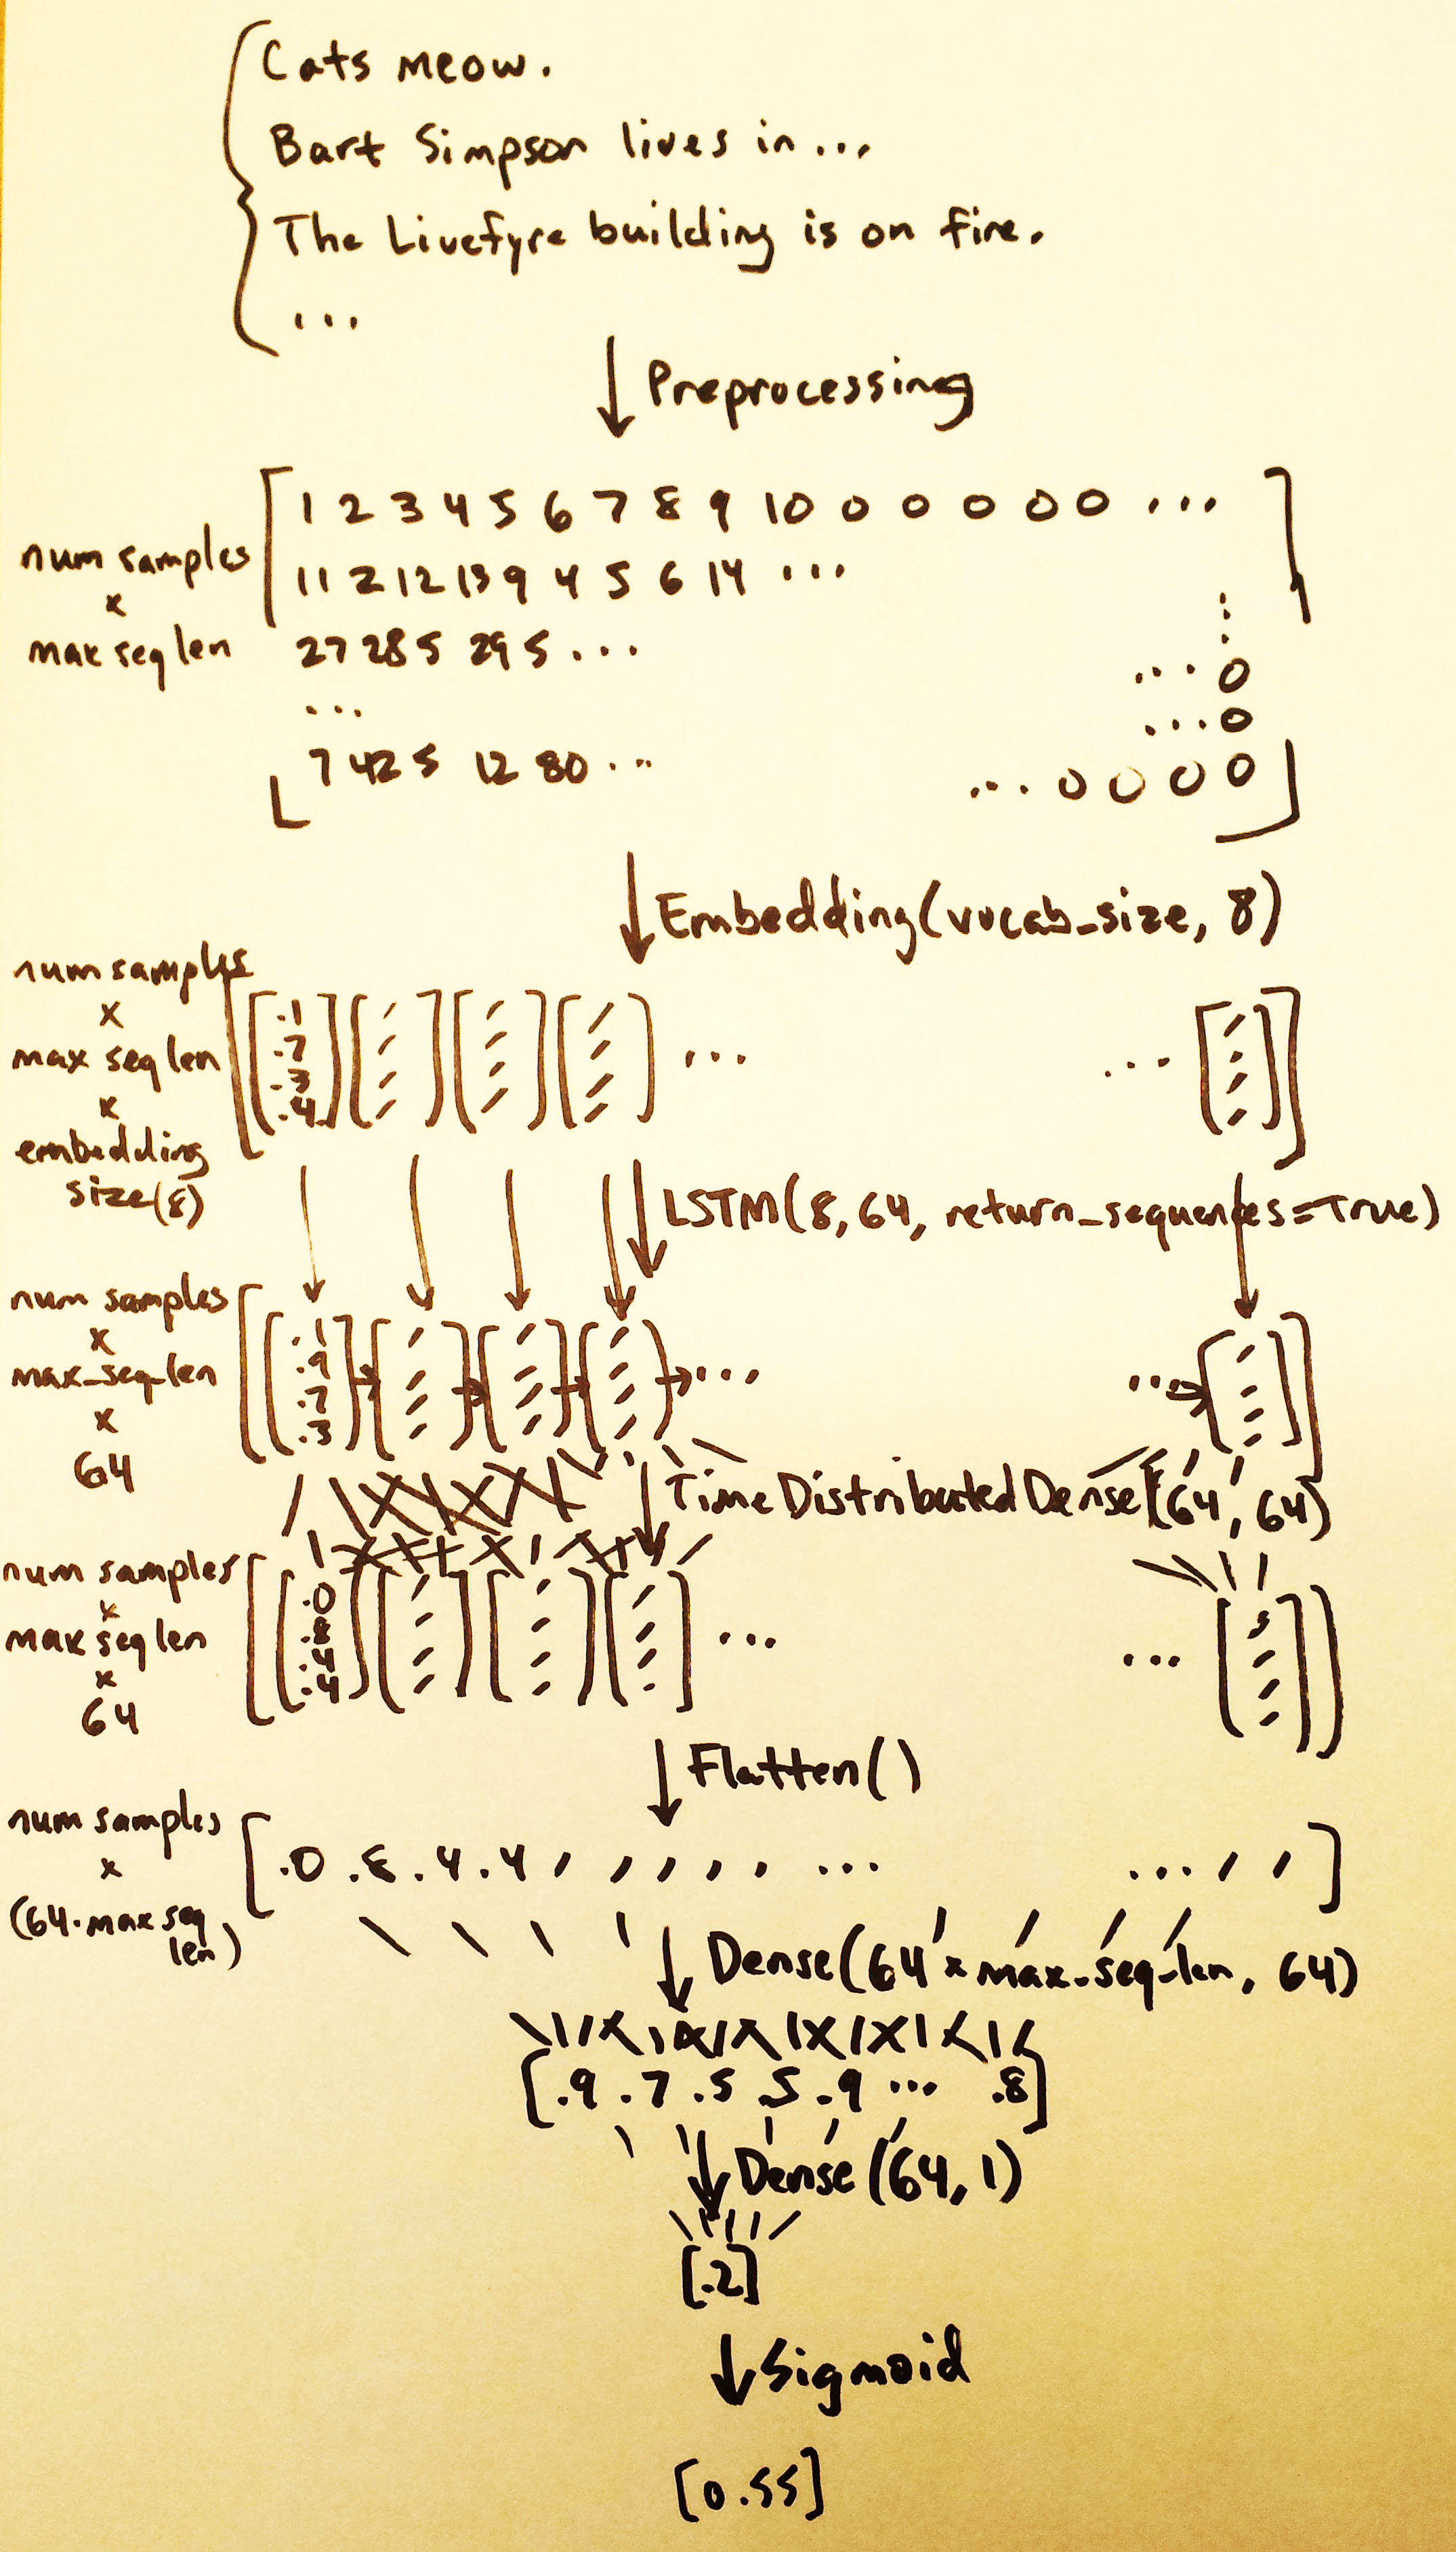 Cats meow.
Bart Simpson lives in...
The Livefyre building is on fire.
...
Preprocessing
num samples
x
max seq len
1 2 3 4 5 6 7 8 9 10 0 0 0 0 0 ...
11 2 12 13 9 4 5 6 14 ...
27 28 5 29 5 ...
... 0
...
... 0
7 42 5 12 80 ... ... 0 0 0 0
Embedding(vocab_size, 8)
num samples
x
max seq len
x
embedding
size(8)
.1
.7
.3
.4
... ...
LSTM(8, 64, return_sequences=True)
num samples
x
max_seq_len
x
64
.1
.9
.7
.3
... ...
TimeDistributedDense(64, 64)
num samples
x
max seq len
x
64
.0
.8
.4
.4
... ...
Flatten()
num samples
x
(64·max seq
len)
[.0 .8 .4 .4 , , , , , ... ... , , ]
Dense(64 x max_seq_len, 64)
[.9 .7 .5 .5 .9 ... .8]
Dense(64, 1)
[.2]
Sigmoid
[0.55]